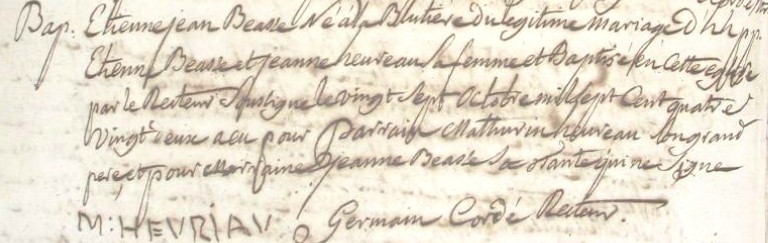 Bap: Etienne jean Beasse Né à la Blutiere du legitime mariage d'h. hpp.
Etienne Beasse et jeanne heureau sa femme et Baptisé en cette eglise
par le Recteur Soussigné le vingt Sept Octobre mil Sept Cent quatre
Vingt deux a eu pour Parrain Mathurin heureau son grand
pere, et pour Marraine Jeanne Beasse Sa tante qui ne Signe
M: HEVRIAV Germain Cordé Recteur.